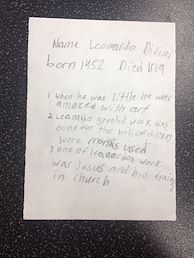 Name Leonardo Divinni
born 1452 Died 1519
1 when he was little he was
amazed with art
2 Leanardo greatist work was
done for the hall of dining
were monks used
3 one of leanardos work
was Jesus and his
in church